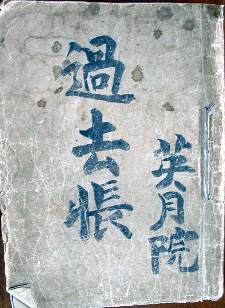 過去帳
英月院